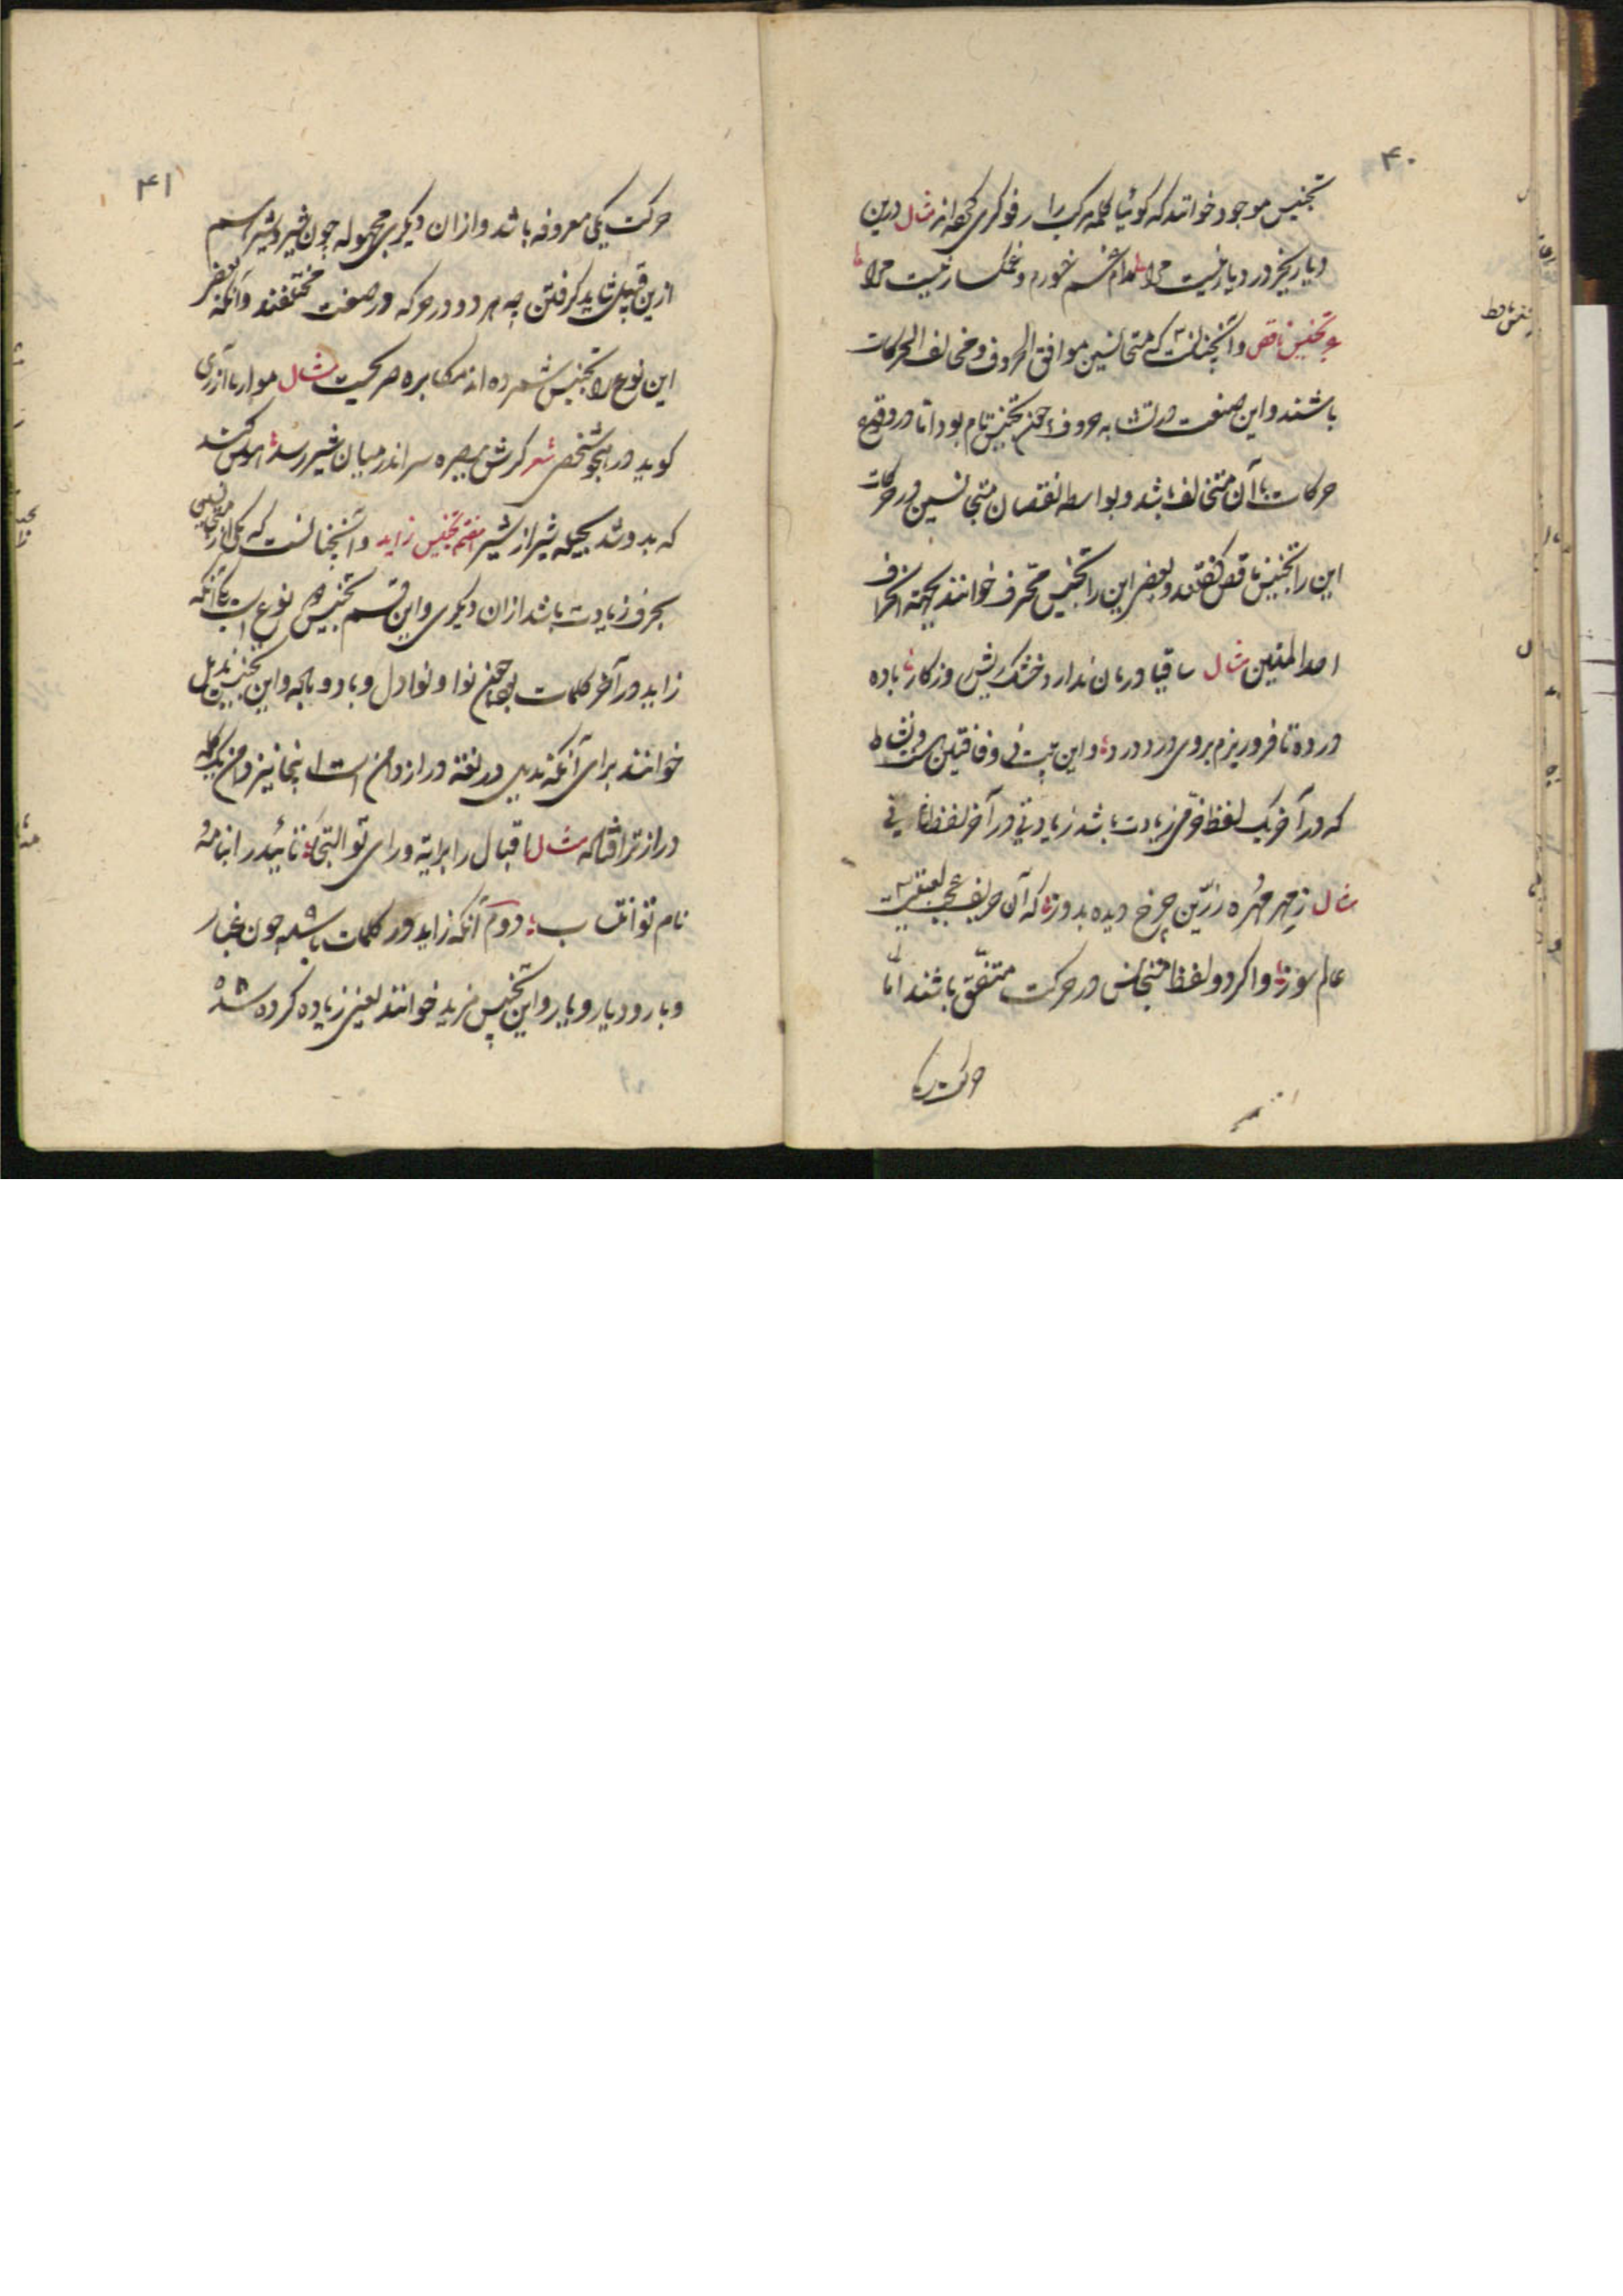 ۴۰
تجنیس موجود خوانند که کوئیا کلمه مرکب را رفوکری کرده‌اند مثال درین
دیار بجز درد یار نیست مرا مدام غم خورم و غمکسار نیست مرا
تجنیس ناقص و آنچنانست که متجانسین موافق الحروف و مخالف الحرکات
باشند و این صنعت در تشابه حروف چون تجنیس تام بود اما در وقوع
حرکات با آن متخالف باشد و بواسطه نقصان متجانسین در حرکات
این را تجنیس ناقص کفتند و بعضی این را تجنیس محرف خوانند بجهة انحراف
احد المتنین مثال ساقیا درمان ندارد خشک ریش روزکار باده
در ده تا فرو ریزم بروی درد درد و این بیت
که در آخر یک لفظ حرفی زیادت باشد زیادتی در آخر لفظ ثانی
مثال ز مهر مهره زرین چرخ دیده بدوز که آن حریف عجب لعبتیست
عالم سوز و اکر دو لفظ متجانس در حرکت متفق باشند اما
حرکت یکی
۴۱
حرکت یکی معروفه باشد و از ان دیکری مجهوله چون شیر و شیر هم
ازین قبیل شاید کرفتن چه هر دو در حرکه در صفت مختلفند و آنکه بعضی
این نوع را تجنیس شمرده‌اند مکابره صریحیت مثال مولانا آذری
کوید در هجو شخصی شعر کرش بهیره سر اندر میان شیر رسد هوس کند
که بدوشد بحیله شیر از شیر هفتم تجنیس زاید و آنچنانست که یکی از متجانسین
بحرف زیادت باشد از ان دیکری و این قسم تجنیس نوع است یکی آنکه
زاید در آخر کلمات بود چون نوا و نوادل و باد و باده و این تجنیس مذیل
خوانند برای آنکه مذیل در لغة دراز دامن است اینجا نیز دامن یک کلمه
درازتر افتاده مثال اقبال را برایة و رای تو التجا تائید را بنامه و
نام تو انتساب دوم آنکه زاید در کلمات باشد چون غبار
و بار و دیار و یار و این تجنیس مزید خوانند یعنی زیاده کرده شده